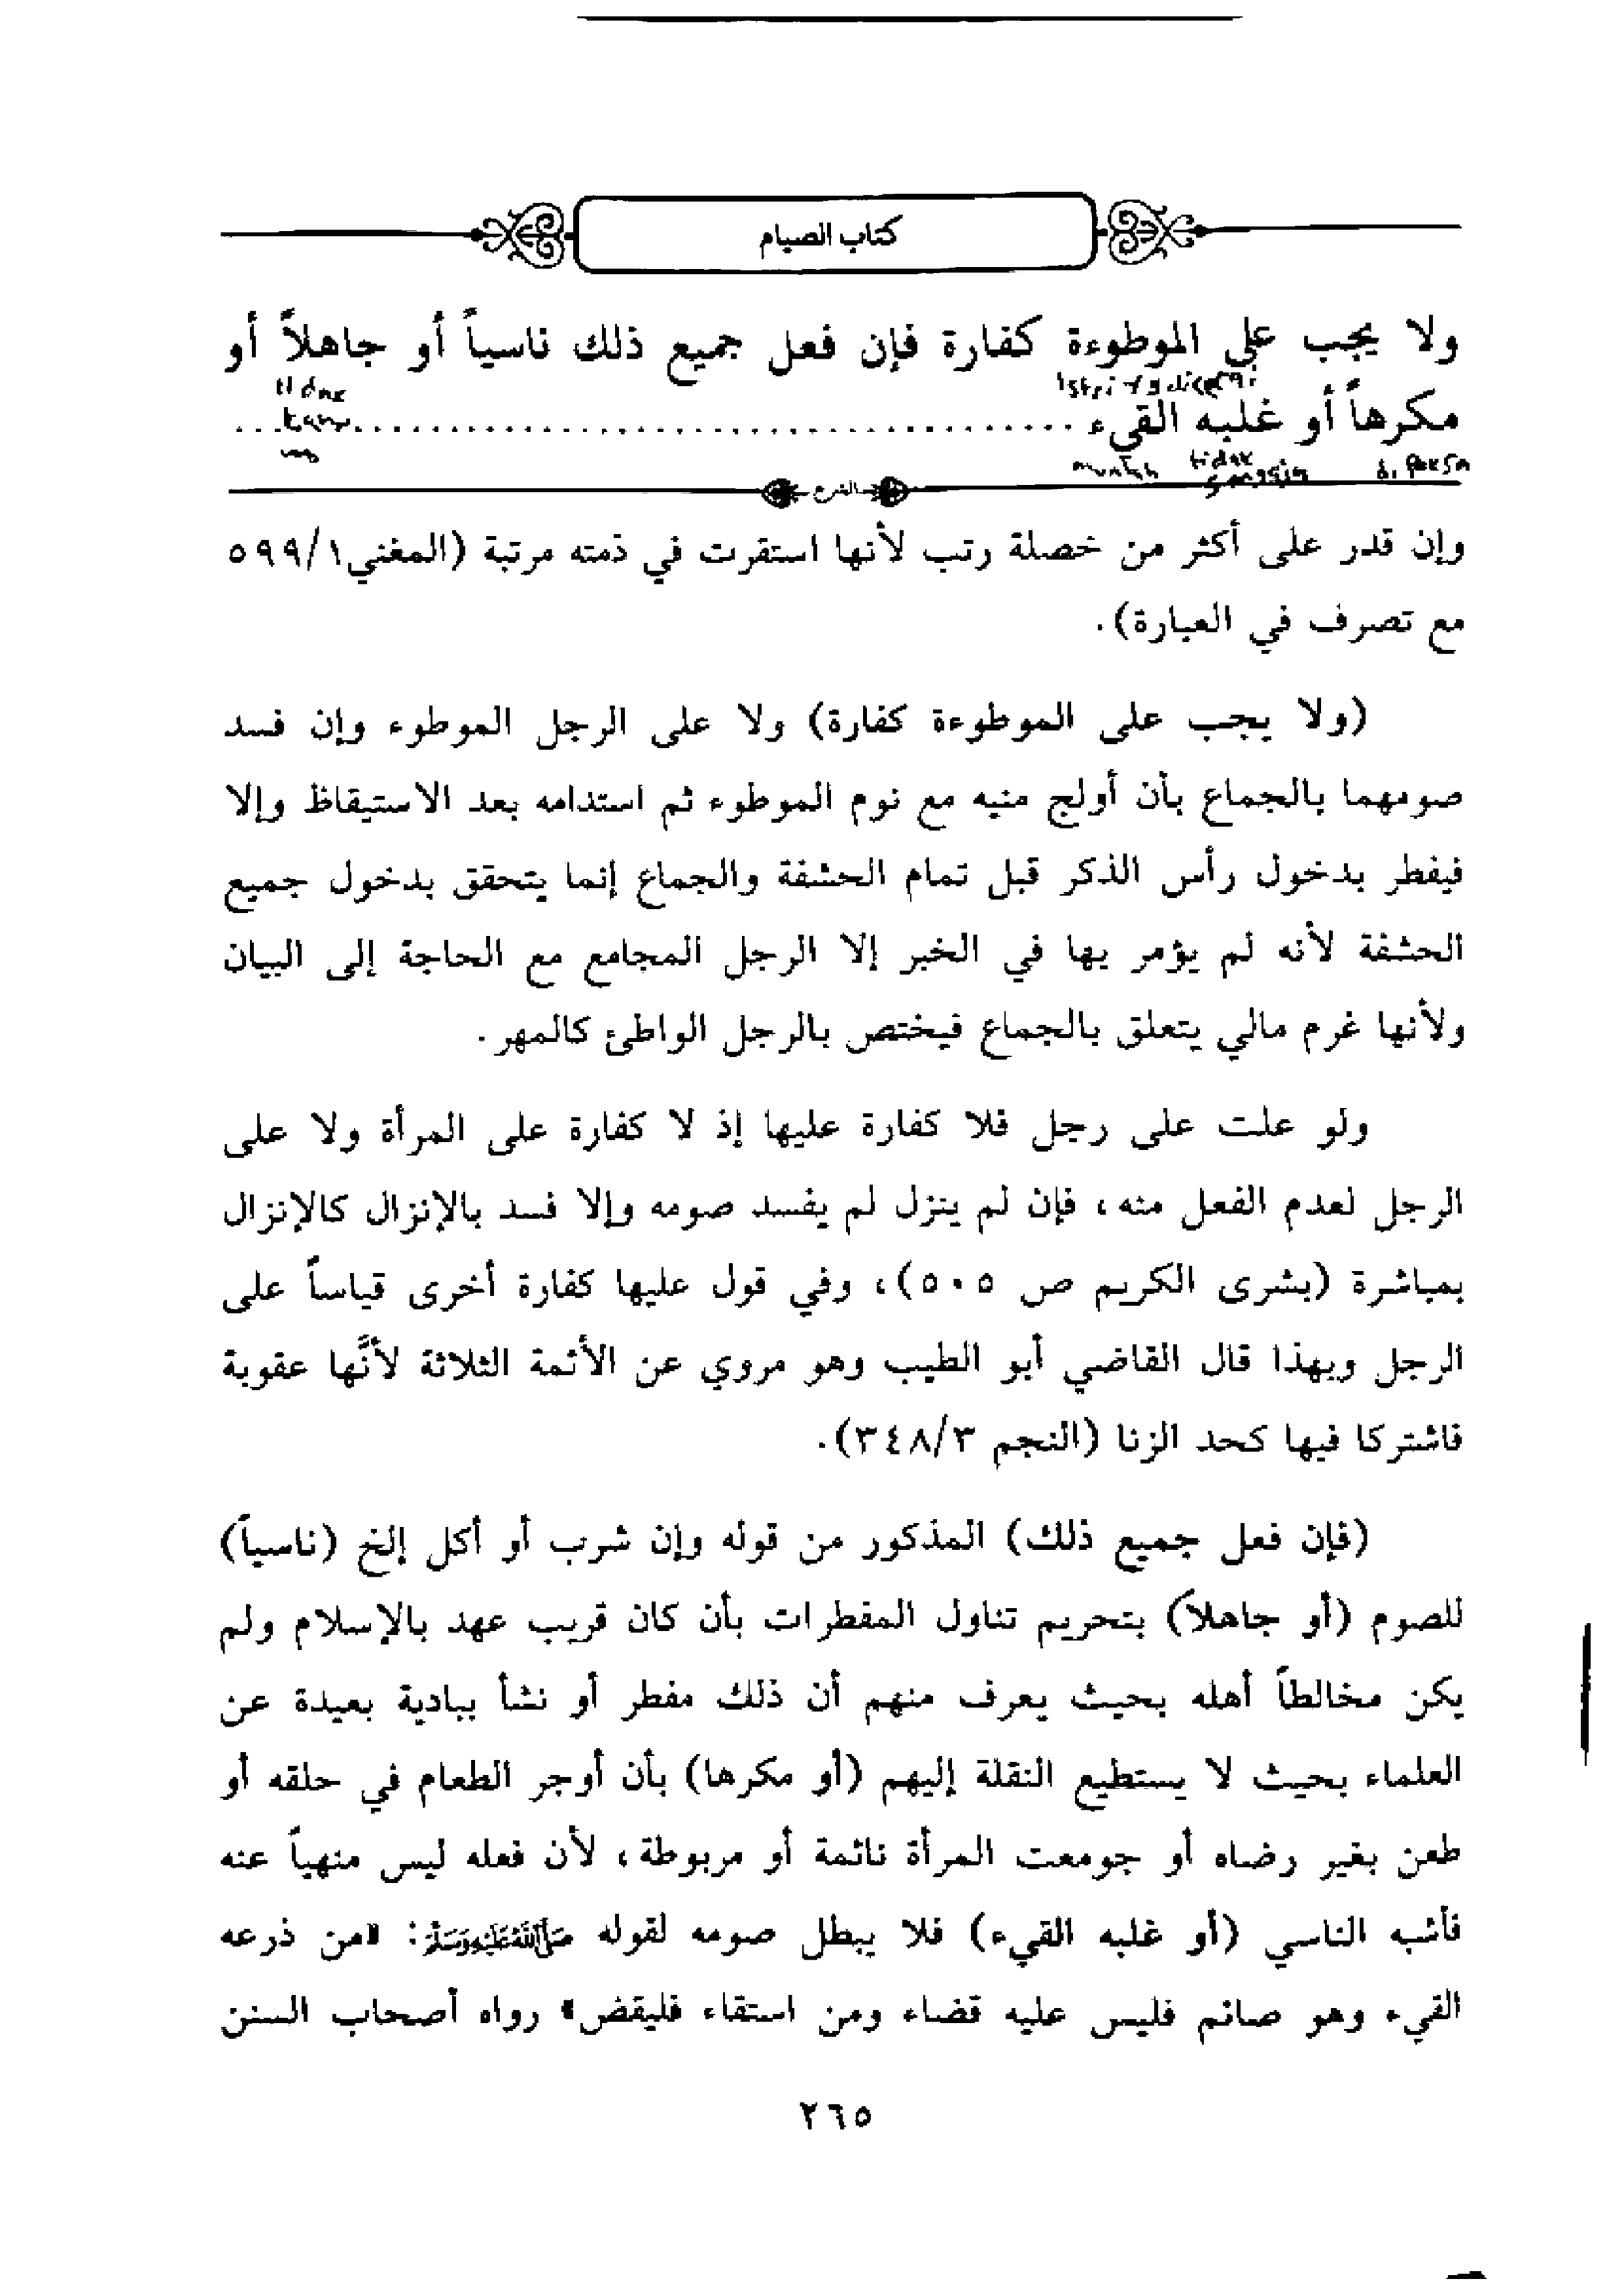 كتاب الصيام
ولا يجب على الموطوءة كفارة فإن فعل جميع ذلك ناسياً أو جاهلاً أو
tidak
مكرهاً أو غلبه القيء ........................................
muntah tidak sengaja di paksa
الشرح
وإن قدر على أكثر من خصلة رتب لأنها استقرت في ذمته مرتبة (المغني ٥٩٩/١
مع تصرف في العبارة).
(ولا يجب على الموطوءة كفارة) ولا على الرجل الموطوء وإن فسد
صومهما بالجماع بأن أولج منيه مع نوم الموطوء ثم استدامه بعد الاستيقاظ وإلا
فيفطر بدخول رأس الذكر قبل تمام الحشفة والجماع إنما يتحقق بدخول جميع
الحشفة لأنه لم يؤمر بها في الخبر إلا الرجل المجامع مع الحاجة إلى البيان
ولأنها غرم مالي يتعلق بالجماع فيختص بالرجل الواطئ كالمهر.
ولو علت على رجل فلا كفارة عليها إذ لا كفارة على المرأة ولا على
الرجل لعدم الفعل منه، فإن لم ينزل لم يفسد صومه وإلا فسد بالإنزال كالإنزال
بمباشرة (بشرى الكريم ص ٥٠٥)، وفي قول عليها كفارة أخرى قياساً على
الرجل وبهذا قال القاضي أبو الطيب وهو مروي عن الأئمة الثلاثة لأنَّها عقوبة
فاشتركا فيها كحد الزنا (النجم ٣٤٨/٣).
(فإن فعل جميع ذلك) المذكور من قوله وإن شرب أو أكل إلخ (ناسياً)
للصوم (أو جاهلاً) بتحريم تناول المفطرات بأن كان قريب عهد بالإسلام ولم
يكن مخالطاً أهله بحيث يعرف منهم أن ذلك مفطر أو نشأ ببادية بعيدة عن
العلماء بحيث لا يستطيع النقلة إليهم (أو مكرها) بأن أوجر الطعام في حلقه أو
طعن بغير رضاه أو جومعت المرأة نائمة أو مربوطة، لأن فعله ليس منهياً عنه
فأشبه الناسي (أو غلبه القيء) فلا يبطل صومه لقوله ﷺ: «من ذرعه
القيء وهو صائم فليس عليه قضاء ومن استقاء فليقض» رواه أصحاب السنن
٢٦٥